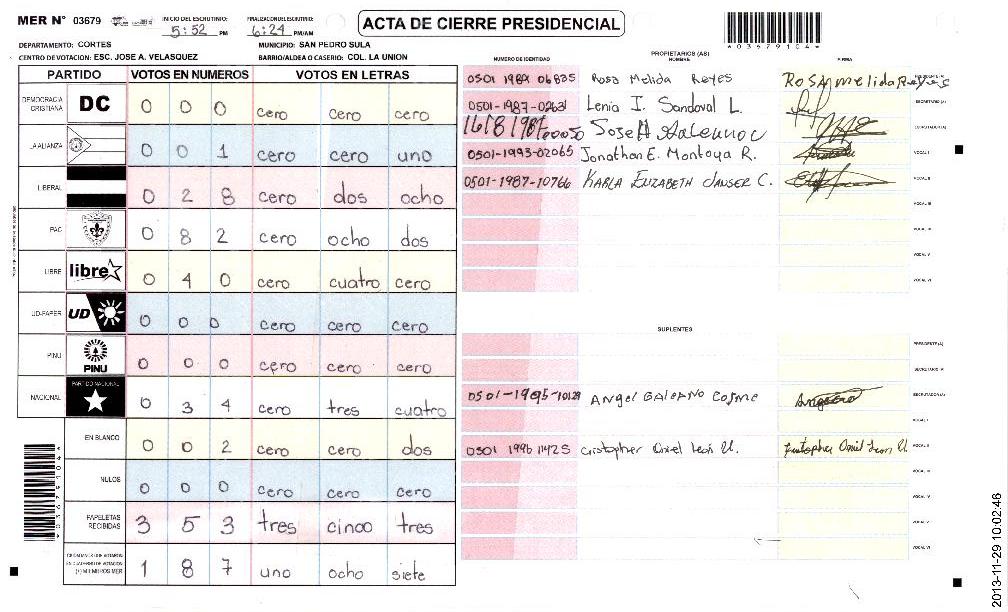 MER N° 03679
INICIO DEL ESCRUTINIO:
5:52 PM
FINALIZACION DEL ESCRUTINIO:
6:24 PM/AM
ACTA DE CIERRE PRESIDENCIAL
*03679104*
DEPARTAMENTO: CORTES
MUNICIPIO: SAN PEDRO SULA
CENTRO DE VOTACION: ESC. JOSE A. VELASQUEZ
BARRIO/ALDEA O CASERIO: COL. LA UNION
PARTIDO VOTOS EN NUMEROS VOTOS EN LETRAS
DEMOCRACIA CRISTIANA DC 0 0 0 cero cero cero
LA ALIANZA 0 0 1 cero cero uno
LIBERAL 0 2 8 cero dos ocho
PAC 0 8 2 cero ocho dos
LIBRE libre 0 4 0 cero cuatro cero
UD-FAPER UD 0 0 0 cero cero cero
PINU PINU 0 0 0 cero cero cero
NACIONAL PARTIDO NACIONAL 0 3 4 cero tres cuatro
EN BLANCO 0 0 2 cero cero dos
NULOS 0 0 0 cero cero cero
PAPELETAS RECIBIDAS 3 5 3 tres cinco tres
1 8 7 uno ocho siete
NUMERO DE IDENTIDAD
PROPIETARIOS (AS)
NOMBRE
FIRMA
0501 1989 06835 Rosa Melida Reyes Rosa melida Reyes
0501-1987-02631 Lenia I. Sandoval L. SECRETARIO (A)
ESCRUTADOR (A)
0501-1993-02065 Jonathan E. Montoya R. VOCAL I
0501-1987-10766 KARLA ELIZABETH JANSER C. VOCAL II
VOCAL III
VOCAL IV
VOCAL V
VOCAL VI
SUPLENTES
PRESIDENTE (A)
SECRETARIO (A)
0501-1985-10129 ANGEL GALEANO COSME ESCRUTADOR (A)
VOCAL I
0501 1996 11425 VOCAL II
VOCAL III
VOCAL IV
VOCAL V
VOCAL VI
2013-11-29 10:02:46